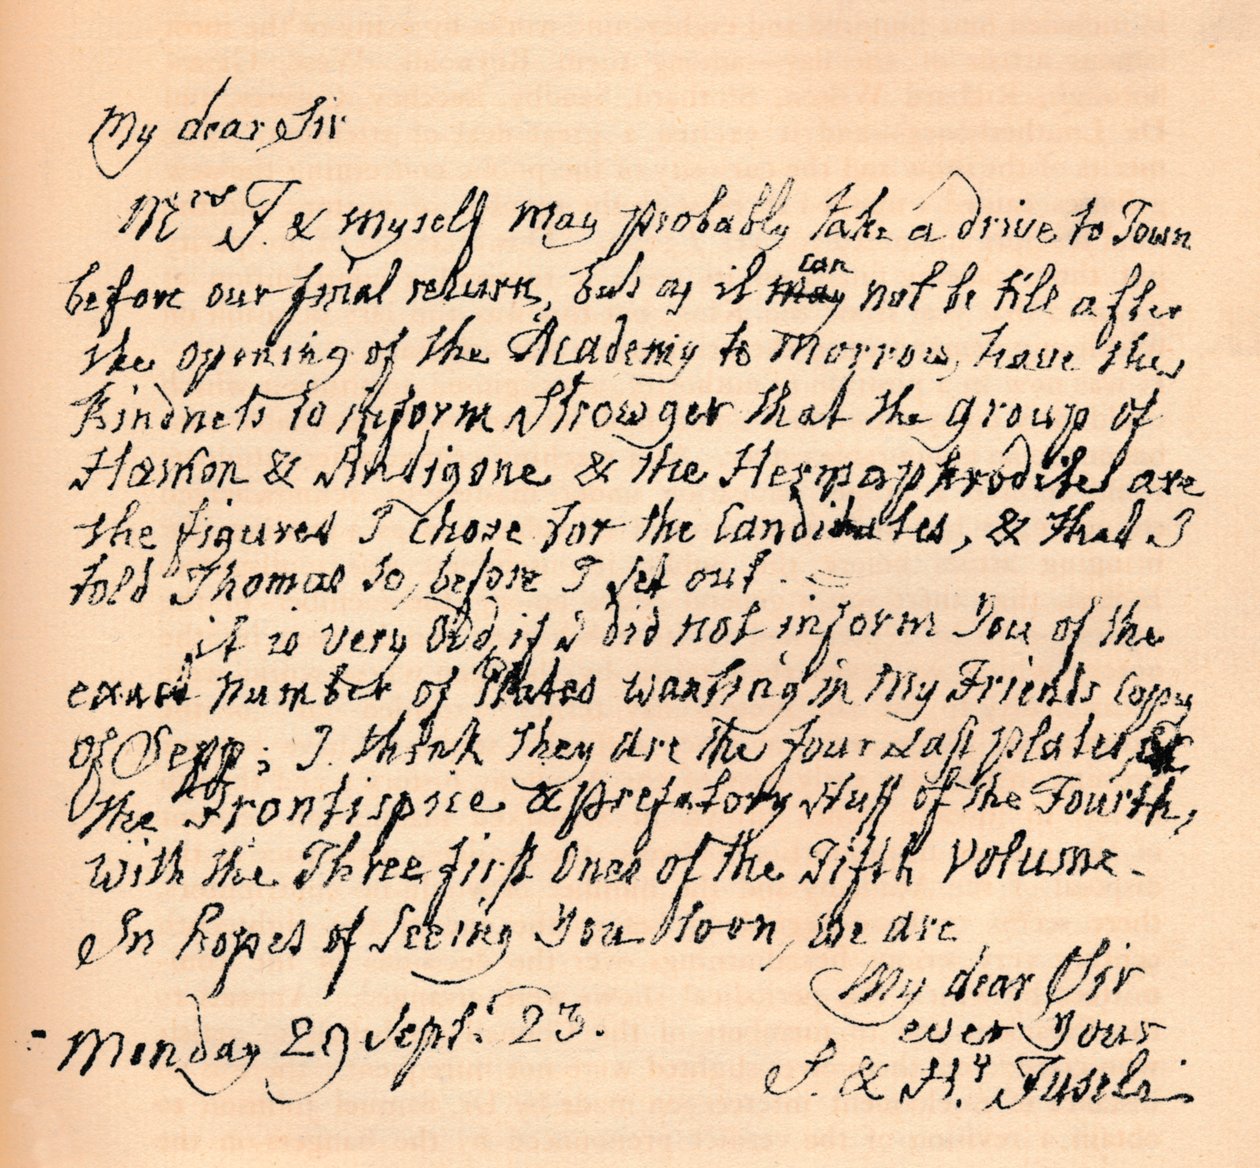 My dear Sir
Mrs F. & Myself May probably take a drive to Town
before our final return, but as it can may not be till after
the opening of the Academy to Morrow, have the
kindness to inform Strowger that the group of
Hæmon & Antigone & the Hermaphrodite are
the figures I chose for the Candidates, & that I
told Thomas so, before I set out.
it is very Odd, if I did not inform You of the
exact number of Plates wanting in My Friends Copy
of Sepp; I think they are the four Last plates, &
the Frontispice & prefatory Stuff of the Fourth,
with the Three first Ones of the Fifth Volume.
In hopes of Seeing You Soon, we are
My dear Sir
ever Yours
S. & Hy. Fuseli
Monday 29 Sept. 23.